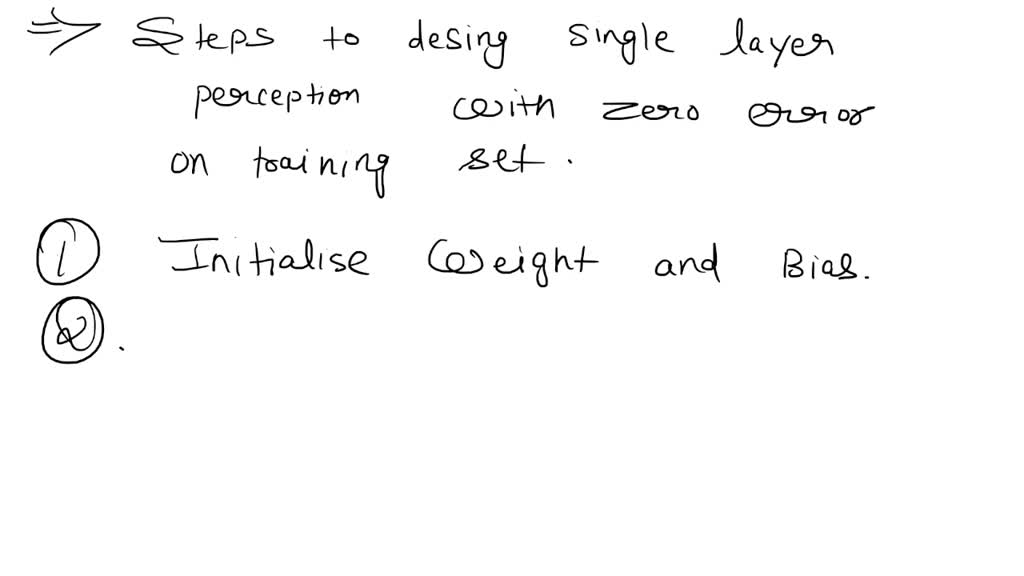 ⇒ Steps to desing single layer
perception with zero error
on training set.
① Initialise Weight and Bias.
② .